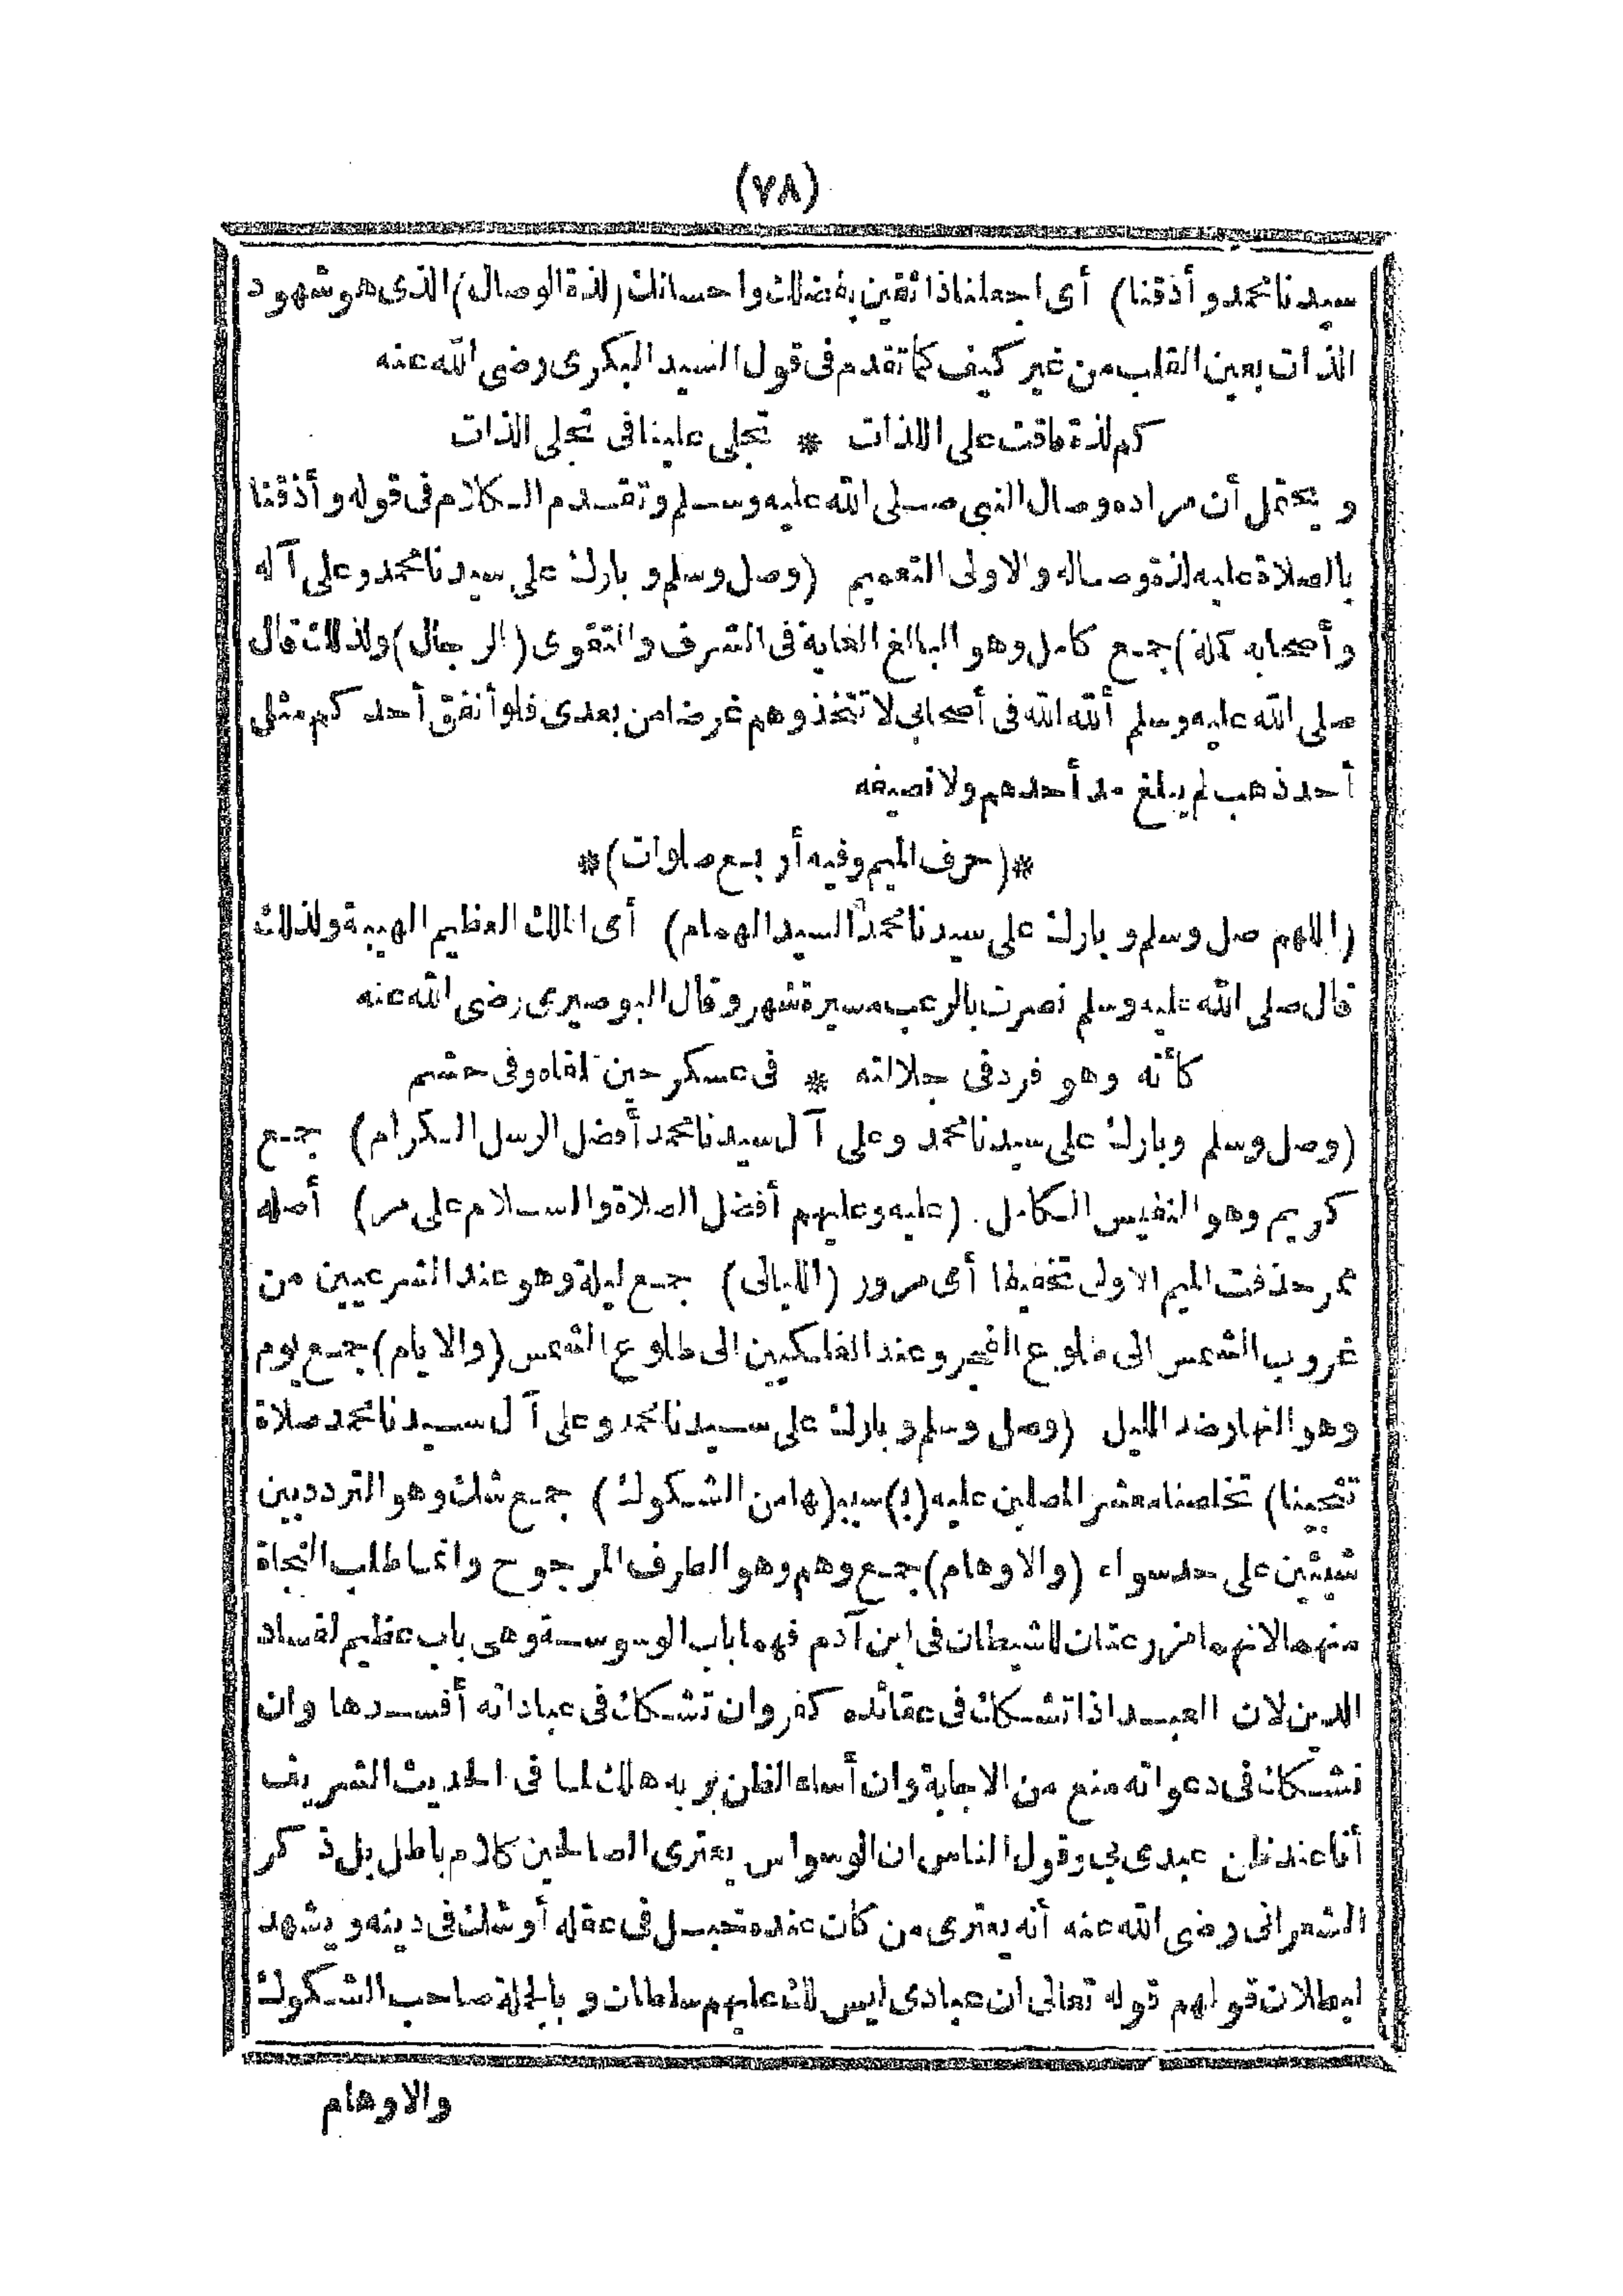 (٧٨)
سيدنا محمد وأذقنا) أى اجعلنا ذائقين بفضلك واحسانك (لذة الوصال) الذى هو شهود
الذات بعين القلب من غير كيف كما تقدم فى قول السيد البكرى رضى الله عنه
كم لذة فاقت على اللذات * تجلى علينا فى تجلى الذات
و يحتمل أن مراده وصال النبى صلى الله عليه وسلم وتقدم الكلام فى قوله وأذقنا
بالصلاة عليه لذة وصاله والاولى التعميم (وصل وسلم و بارك على سيدنا محمد وعلى آله
وأصحابه كملة) جمع كامل وهو البالغ الغاية فى الشرف والتقوى (الرجال) ولذلك قال
صلى الله عليه وسلم ألله الله فى أصحابى لا تتخذوهم غرضا من بعدى فلو أنفق أحدكم مثل
أحد ذهب لم يبلغ مد أحدهم ولا نصيفه
*(حرف الميم وفيه أربع صلوات)*
(اللهم صل وسلم و بارك على سيدنا محمد السيد الهمام) أى الملك العظيم الهيبة ولذلك
قال صلى الله عليه وسلم نصرت بالرعب مسيرة شهر وقال البوصيرى رضى الله عنه
كأنه وهو فرد فى جلالته * فى عسكر حين تلقاه وفى حشم
(وصل وسلم وبارك على سيدنا محمد وعلى آل سيدنا محمد أفضل الرسل الكرام) جمع
كريم وهو النفيس الكامل. (عليه وعليهم أفضل الصلاة والسلام على مر) أصله
ممر حذفت الميم الاولى تخفيفا أى مرور (الليالى) جمع ليلة وهو عند الشرعيين من
غروب الشمس الى طلوع الفجر وعند الفلكيين الى طلوع الشمس (والايام) جمع يوم
وهو النهار ضد الليل (وصل وسلم و بارك على سيدنا محمد وعلى آل سيدنا محمد صلاة
تنجينا) تخلصنا معشر المصلين عليه (ب) سبب (ها من الشكوك) جمع شك وهو التردد بين
شيئين على حد سواء (والاوهام) جمع وهم وهو الطرف المرجوح وانما طلب النجاة
منهما لانهما مزرعتان للشيطان فى ابن آدم فهما باب الوسوسة وهى باب عظيم لفساد
الدين لان العبد اذا تشكك فى عقائده كفر وان تشكك فى عباداته أفسدها وان
تشكك فى دعواته منع من الاجابة وان أساء الظن بربه هلك لما فى الحديث الشريف
أنا عند ظن عبدى بى وقول الناس ان الوسواس يعترى الصالحين كلام باطل بل ذكر
الشعرانى رضى الله عنه أنه يعترى من كان عنده تخبل فى عقله أو شك فى دينه ويشهد
لبطلان قولهم قوله تعالى ان عبادى ليس لك عليهم سلطان و بالجملة صاحب الشكوك
والاوهام